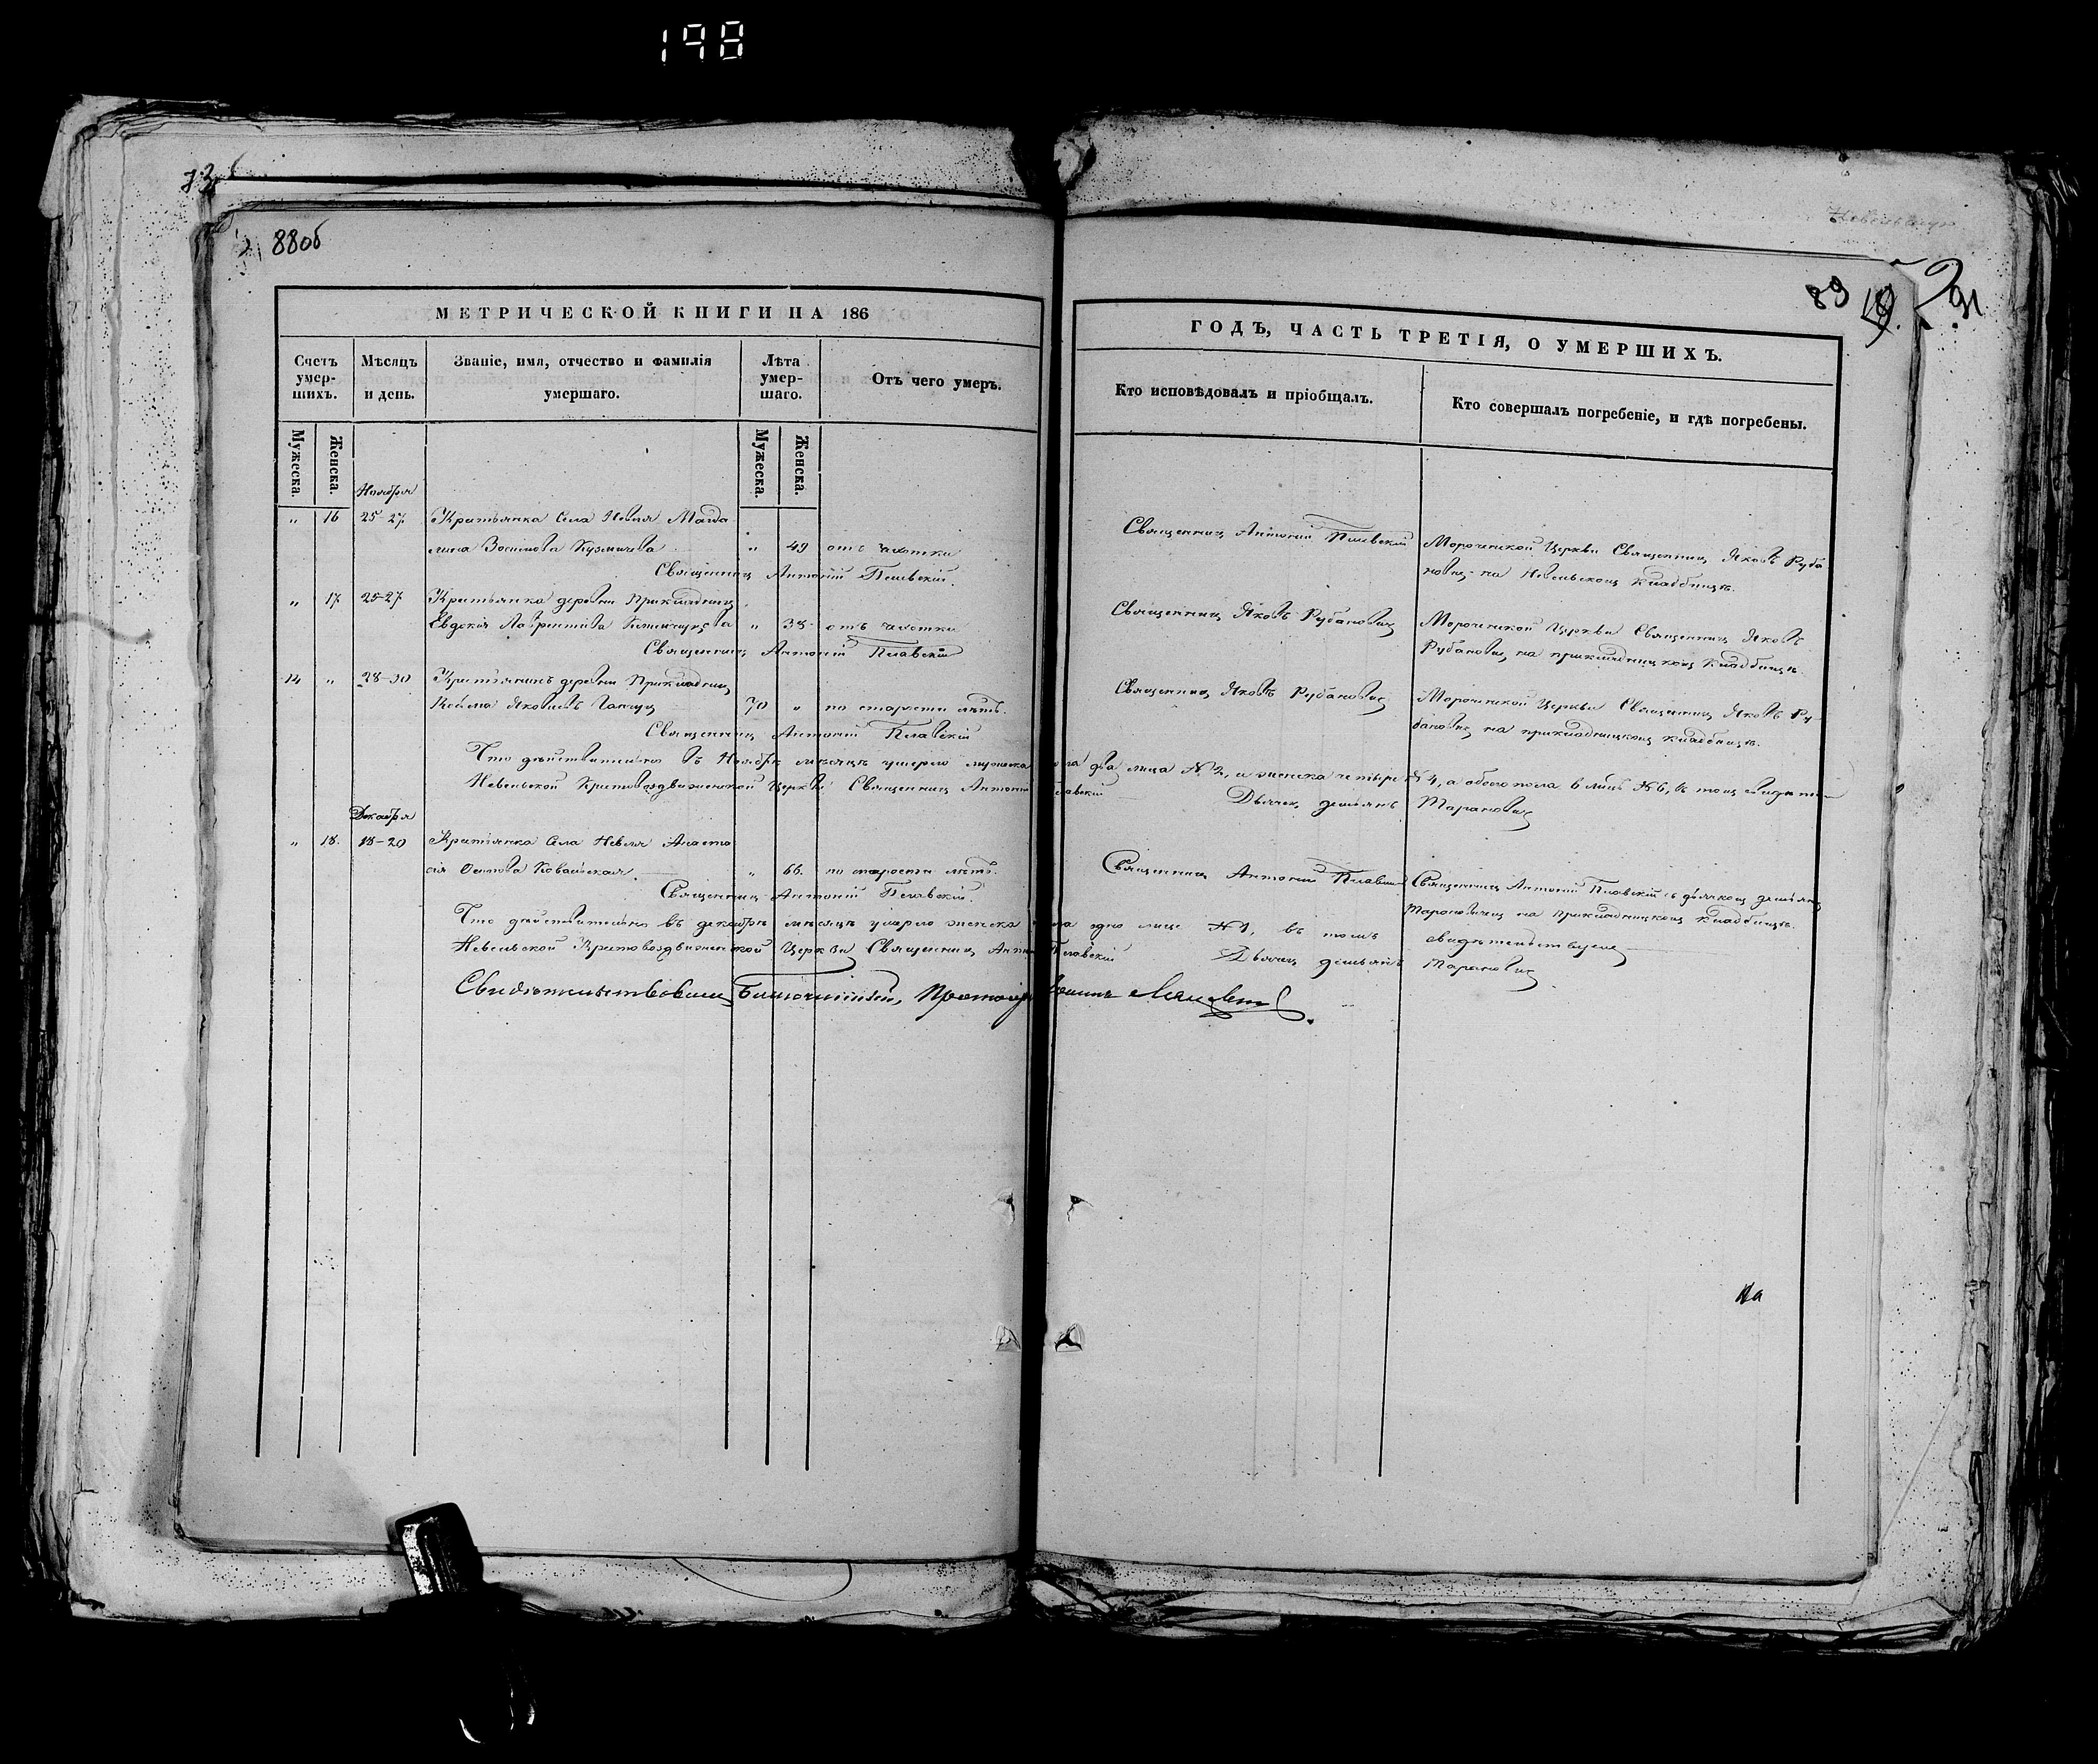 198
73
88об
Невельскую
89
91
МЕТРИЧЕСКОЙ КНИГИ НА 186
ГОДЪ, ЧАСТЬ ТРЕТІЯ, О УМЕРШИХЪ.
Счетъ умер-шихъ.
Мѣсяцъ и день.
Званіе, имя, отчество и фамилія умершаго.
Лѣта умер-шаго.
Отъ чего умеръ.
Кто исповѣдовалъ и пріобщалъ.
Кто совершалъ погребеніе, и гдѣ погребены.
Мужеска.
Женска.
Мужеска.
Женска.
Ноября
" 16 25-27 Крестьянка села Невля Магда
лина Кузмичова " 49 отъ чахотки
Священникъ Антоній Пелавскій.
Священникъ Антоній Пелавскій
Мороченской Церкви Священникъ Яковъ Руба
новичъ на Невельскомъ кладбищѣ.
" 17 25-27 Крестьянка деревни Прикладникъ
Евдокія Лаврентіева " 38 отъ чахотки
Священникъ Антоній Пелавскій
Священникъ Яковъ Рубановичъ
Мороченской Церкви Священникъ Яковъ
Рубановичъ, на прикладницкомъ кладбищѣ.
14 " 28-30 Крестьянинъ деревни Прикладникъ
Косьма Яковлевъ 70 " по старости лѣтъ.
Священникъ Антоній Пелавскій
Священникъ Яковъ Рубановичъ
Мороченской Церкви Священникъ Яковъ Ру-
бановичъ на прикладницкомъ кладбищѣ.
Что дѣйствительно въ Ноябрѣ мѣсяцѣ умерло мужеска пола два лица № 2, и женска четыре № 4, а обоего пола 6 лицъ № 6, въ томъ
Невельской Крестовоздвиженской Церкви Священникъ Антоній Пелавскій Дьячекъ Демьянъ Тарановичъ
Декабря
" 18. 18-20 Крестьянка села Невля Анаста
сія Осипова Ковальская " 66. по старости лѣтъ.
Священникъ Антоній Пелавскій.
Священникъ Антоній Пелавскій
Священникъ Антоній Пелавскій съ дьячкомъ Демьяномъ
Тарановичемъ на прикладницкомъ кладбищѣ.
Что дѣйствительно въ декабрѣ мѣсяцѣ умерло женска пола одно лице № 1, въ томъ свидѣтельствуемъ
Невельской Крестовоздвиженской Церкви Священникъ Антоній Пелавскій Дьячекъ Демьянъ Тарановичъ
Свидѣтельствовалъ Благочинный, Протоіерей Іоаннъ